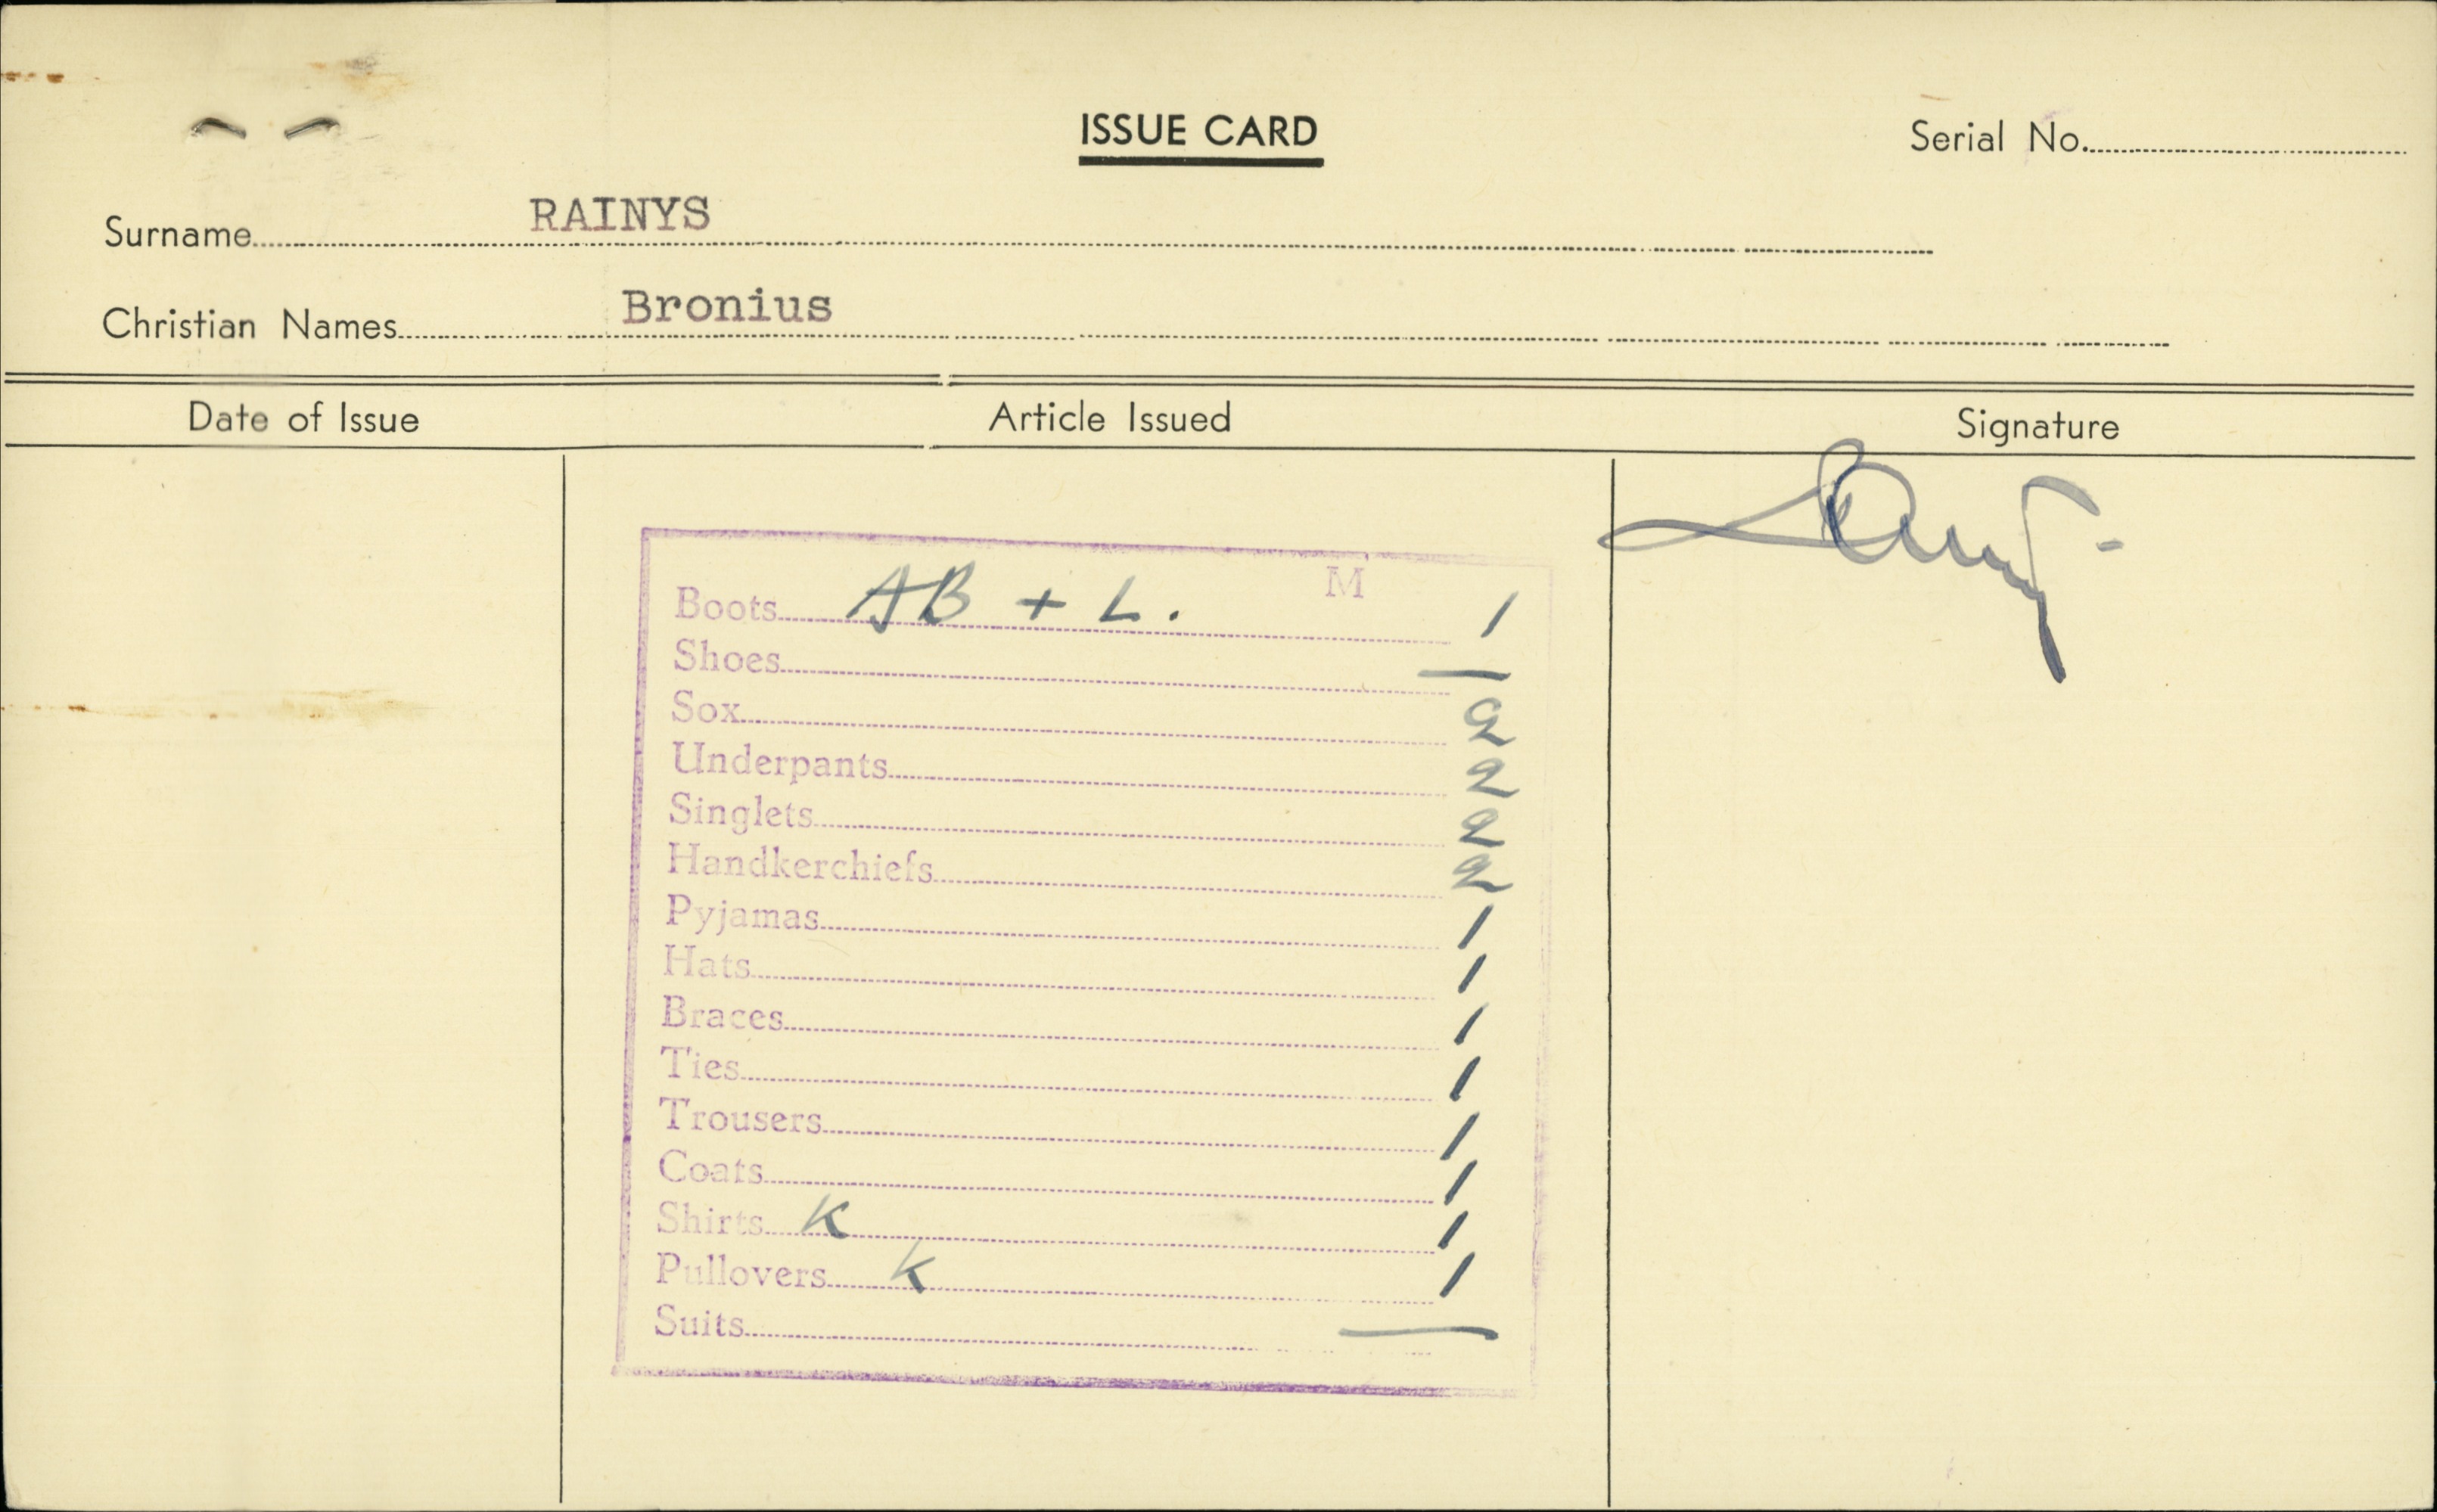 ISSUE CARD
Serial No.
Surname RAINYS
Christian Names Bronius
Date of Issue Article Issued Signature
M
Boots AB + L. 1
Shoes —
Sox 2
Underpants 2
Singlets 2
Handkerchiefs 2
Pyjamas 1
Hats 1
Braces 1
Ties 1
Trousers 1
Coats 1
Shirts K 1
Pullovers K 1
Suits —